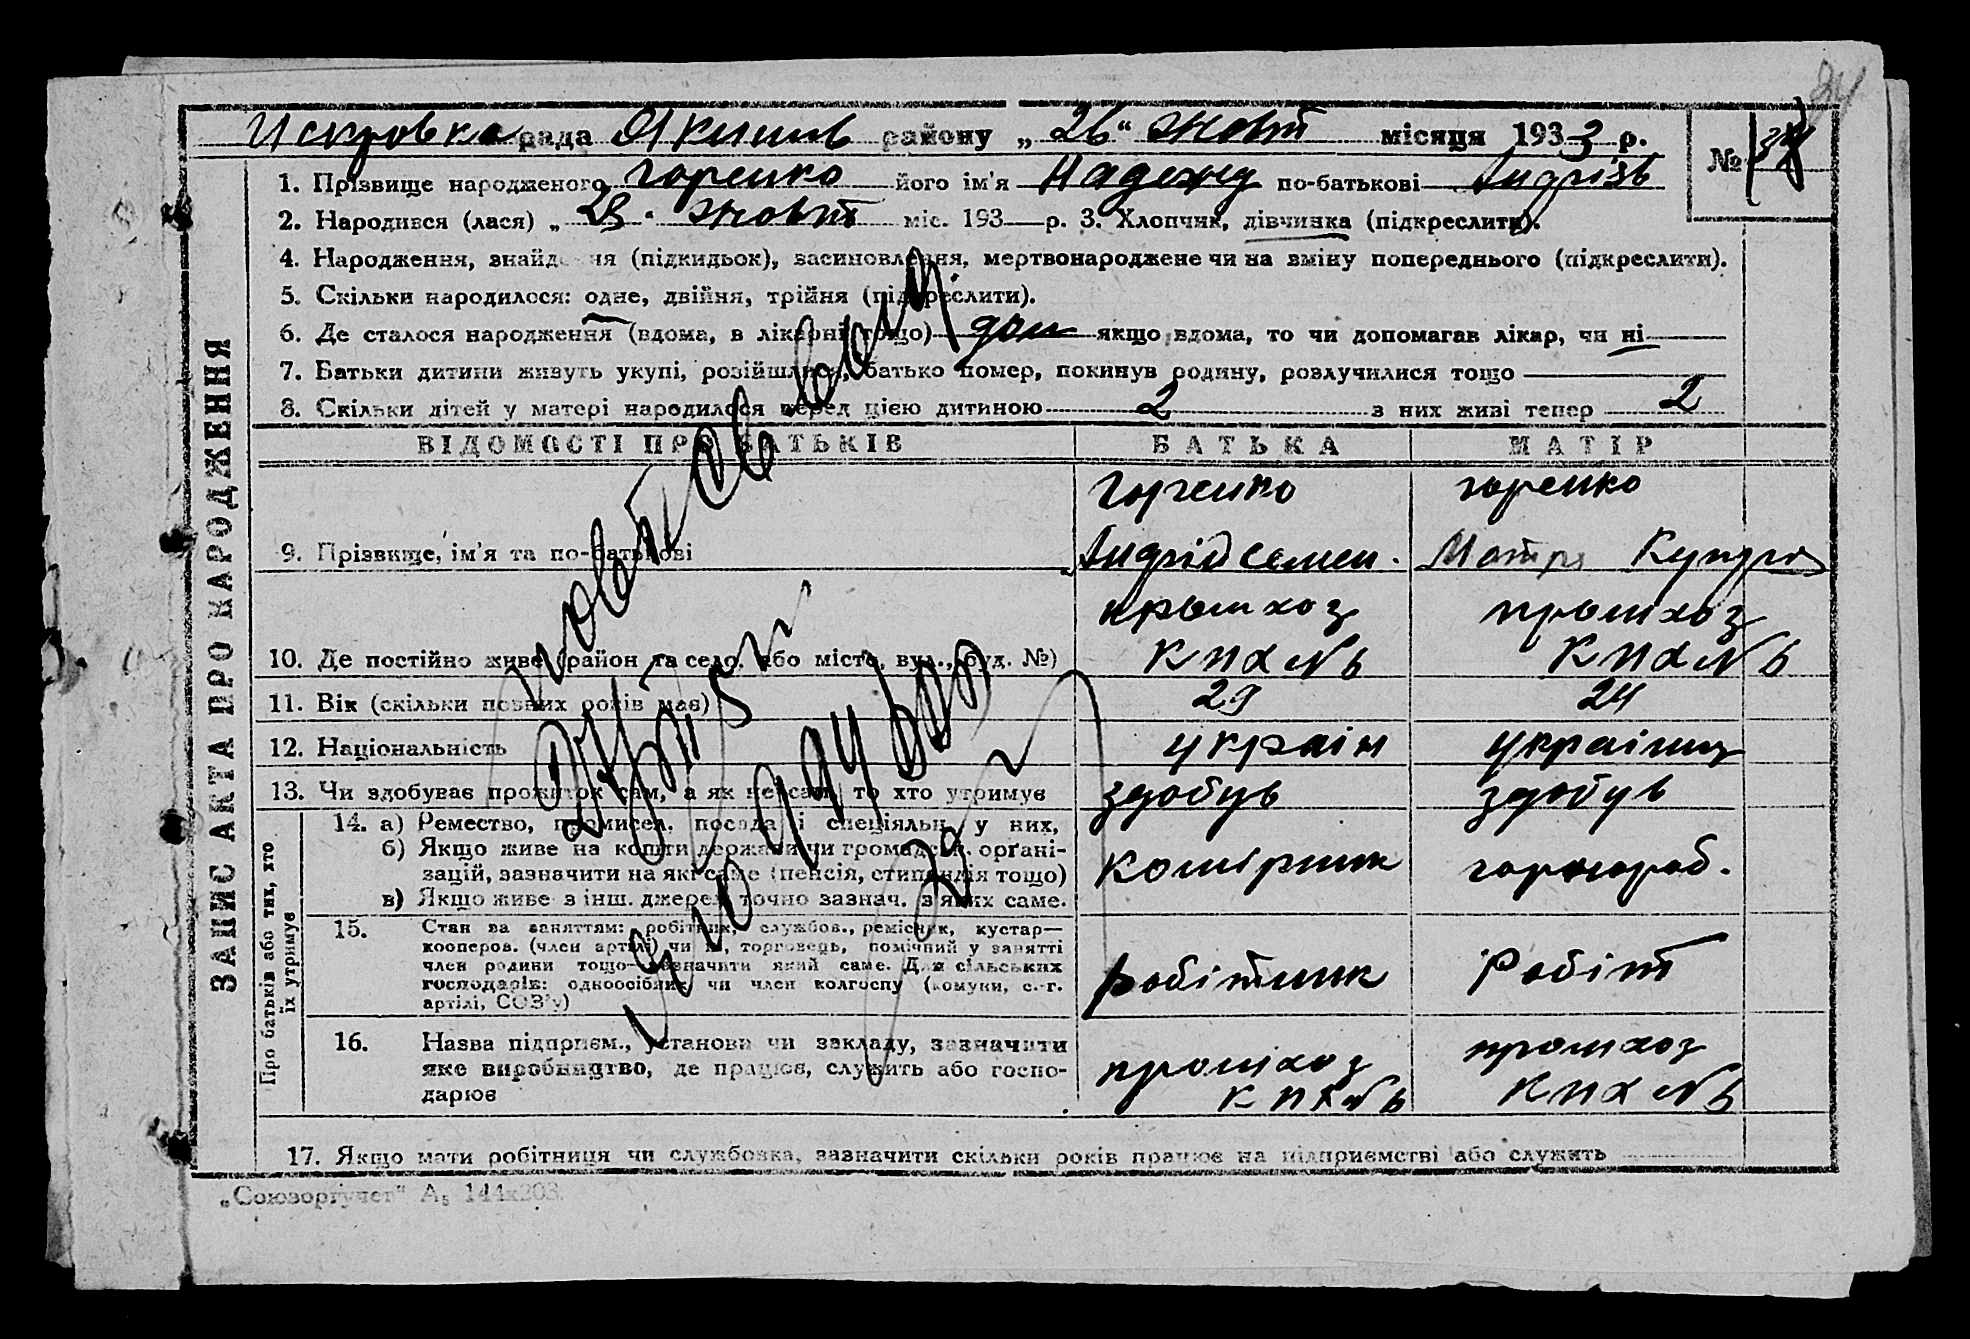 Искровка рада Якимів району „26“ жовт місяця 1933 р.
№ 
1. Прізвище народженого Горенко його ім'я Надежд по-батькові Андрієв
2. Народився (лася) „23“ жовт міс. 193 р. 3. Хлопчик, дівчинка (підкреслити).
4. Народження, знайдення (підкидьок), засиновлення, мертвонароджене чи на зміну попереднього (підкреслити).
5. Скільки народилося: одне, двійня, трійня (підкреслити).
6. Де сталося народження (вдома, в лікарні тощо) дом якщо вдома, то чи допомагав лікар, чи ні
7. Батьки дитини живуть укупі, розійшлися, батько помер, покинув родину, розлучилися тощо
8. Скільки дітей у матері народилося перед цією дитиною 2 з них живі тепер 2
ВІДОМОСТІ ПРО БАТЬКІВ БАТЬКА МАТІР
Горенко горенко
9. Прізвище, ім'я та по-батькові Андрій Семен.
промхоз промхоз
10. Де постійно живе (район та село, або місто, вул., буд. №)
11. Вік (скільки повних років має) 29 24
12. Національність україн україниц
13. Чи здобуває прожиток сам, а як не сам, то хто утримує здобув здобув
14. а) Ремество, промисел, посада і спеціяльн. у них,
б) Якщо живе на кошти держави чи громадськ. орґані-
зацій, зазначити на які саме (пенсія, стипендія тощо) комірник
в) Якщо живе з інш. джерел точно зазнач. з яких саме.
15. Стан за заняттям: робітник, службов., ремісник, кустар—
кооперов. (член артілі) чи ні, торговець, помічний у занятті
член родини тощо—зазначити який саме. Для сільських
господарів: одноосібник чи член колгоспу (комуни, с.-г.
артілі, СОЗ'у) робітник Робіт
16. Назва підприєм., установи чи закладу, зазначити
яке виробництво, де працює, служить або госпо-
дарює промхоз промхоз
17. Якщо мати робітниця чи службовка, зазначити скільки років працює на підприємстві або служить
ЗАПИС АКТА ПРО НАРОДЖЕННЯ
Про батьків або тих, хто
їх утримує
„Союзоргучет“ А₅ 144х203.